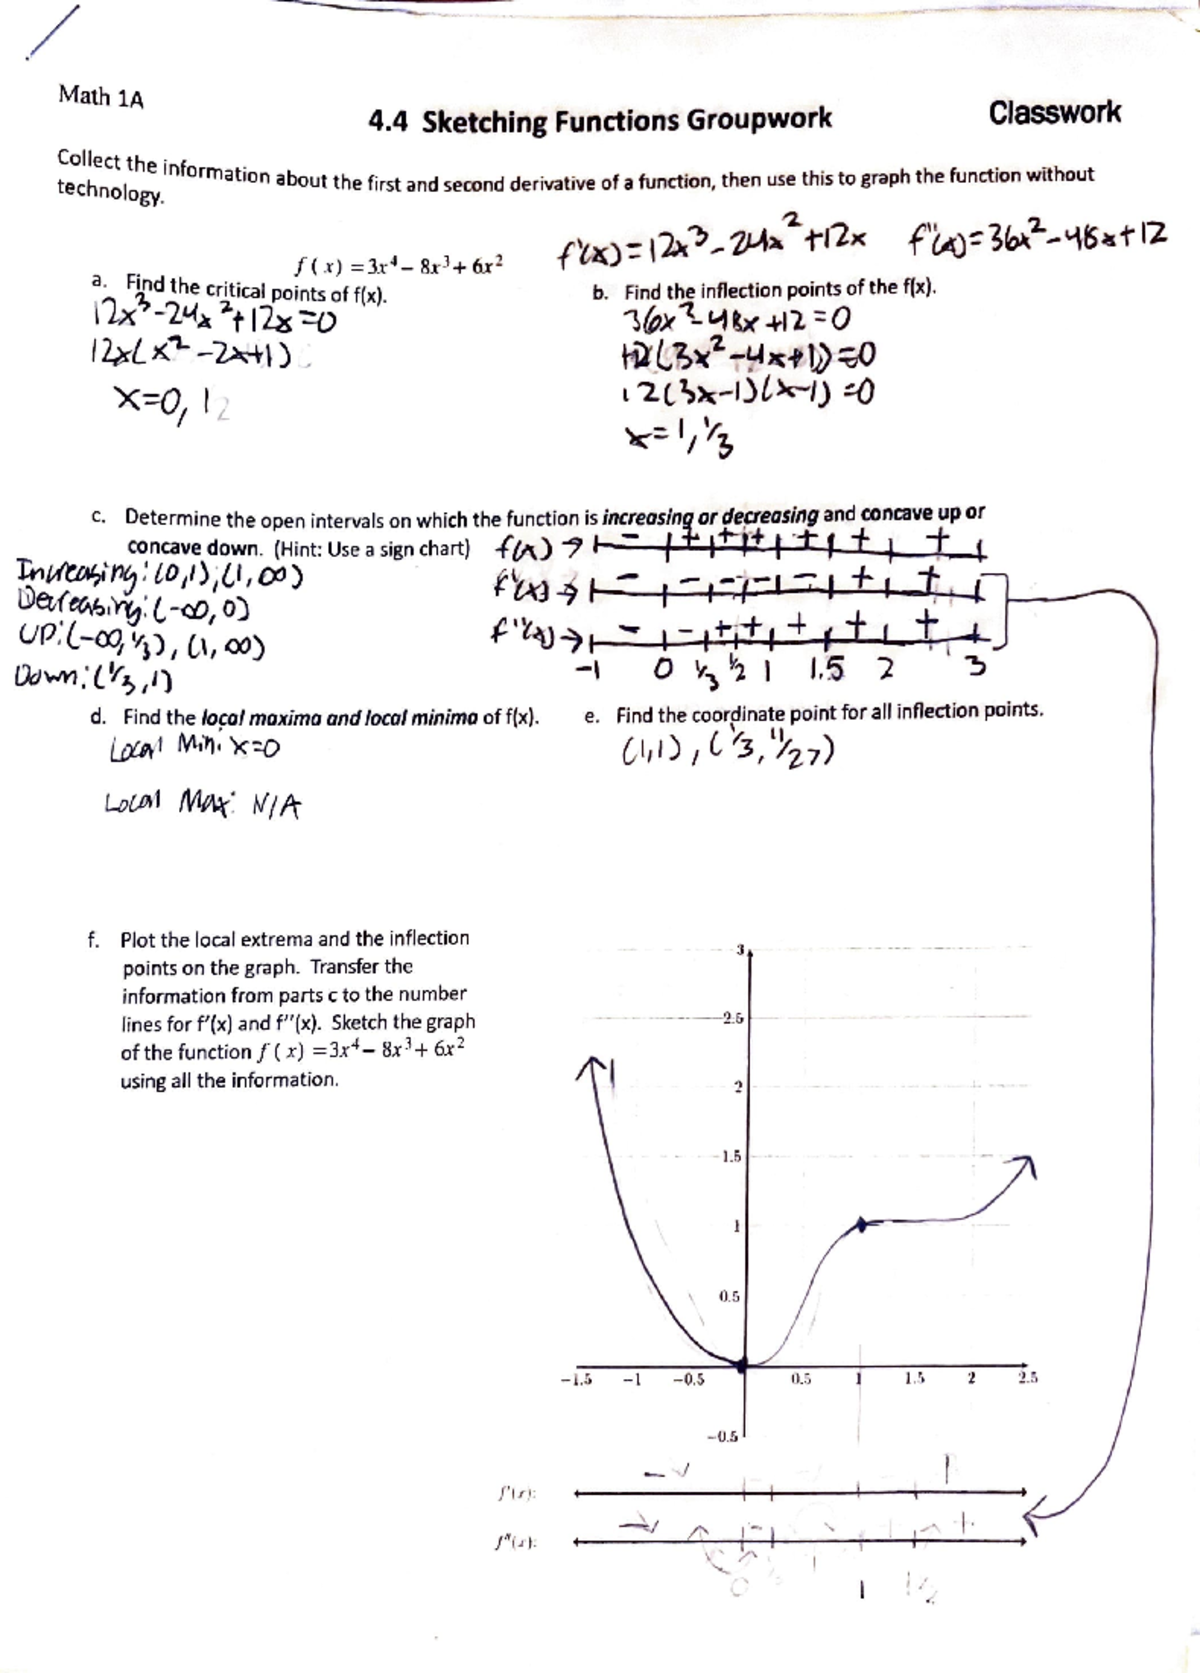 Math 1A
4.4 Sketching Functions Groupwork
Classwork
Collect the information about the first and second derivative of a function, then use this to graph the function without
technology.
f'(x)=12x³-24x²+12x f''(x)=36x²-48x+12
f(x)=3x⁴-8x³+6x²
a. Find the critical points of f(x).
12x³-24x²+12x=0
12x(x²-2x+1)
x=0, 1
b. Find the inflection points of the f(x).
36x²-48x+12=0
12(3x²-4x+1)=0
12(3x-1)(x-1)=0
x=1, 1/3
c. Determine the open intervals on which the function is increasing or decreasing and concave up or
concave down. (Hint: Use a sign chart)
Increasing: (0,1),(1,∞)
Decreasing: (-∞,0)
UP: (-∞,1/3), (1,∞)
Down: (1/3,1)
f(x) → - + + + + + + +
f'(x) → - - - - - + +
f''(x) → - - + + + + +
-1 0 1/3 1/2 1 1.5 2 3
d. Find the local maxima and local minima of f(x).
Local Min: x=0
Local Max: N/A
e. Find the coordinate point for all inflection points.
(1,1), (1/3, 11/27)
f. Plot the local extrema and the inflection
points on the graph. Transfer the
information from parts c to the number
lines for f'(x) and f''(x). Sketch the graph
of the function f(x)=3x⁴-8x³+6x²
using all the information.
3
2.5
2
1.5
1
0.5
-1.5 -1 -0.5 0.5 1 1.5 2 2.5
-0.5
f'(x):
f''(x):
0 1 1/2